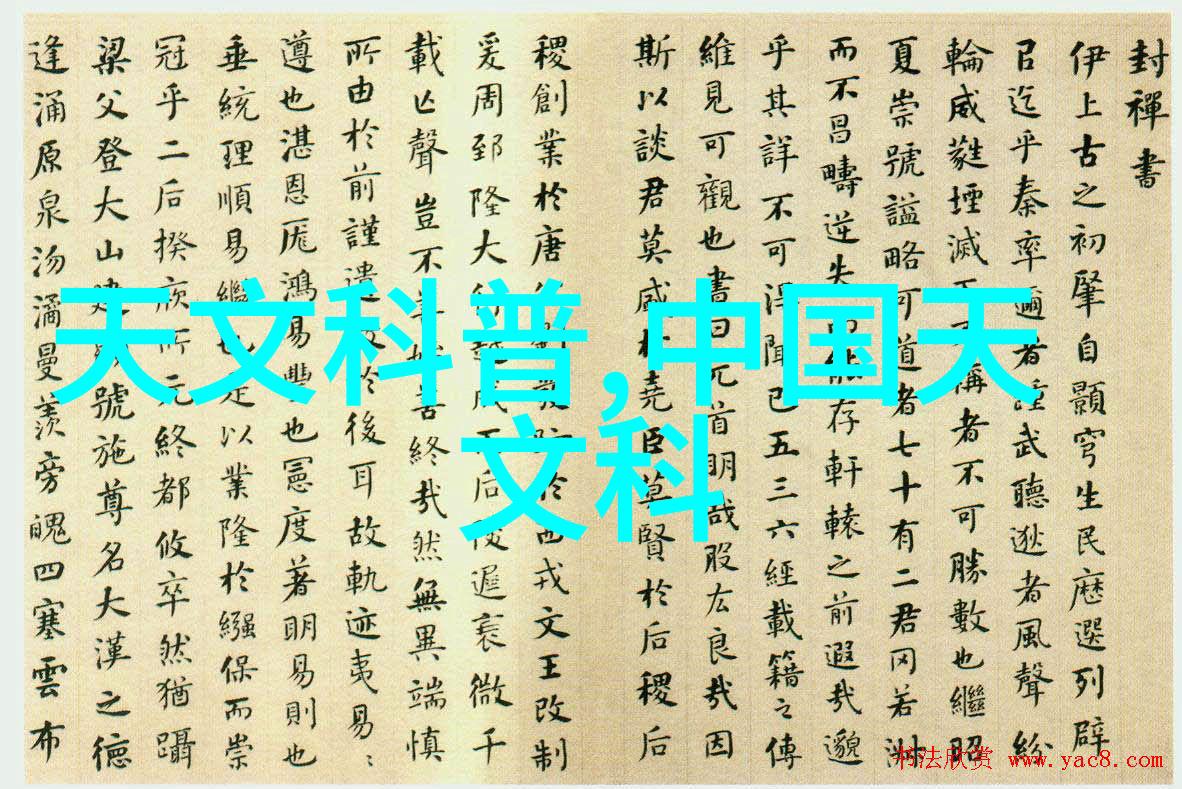 封禪書
伊上古之初肇自顥穹生民歷選列辟
㠯迄乎秦率邇者踵武聽逖者風聲紛
輪威蕤堙滅不稱者不可勝數也繼昭
夏崇號謚略可道者七十有二君罔若淑
而不昌疇逆失能存軒轅之前遐哉邈
乎其詳不可得聞已五三六經載籍之傳
維見可觀也書曰元首明哉股厷良哉因
斯以談君莫盛於堯臣莫賢於后稷后
稷創業於唐發於西戎文王改制
爰周郅隆大行越成后陵遲衰微千
載亡聲豈不善始善終哉然無異端慎
所由於前謹遺教於後耳故軌迹夷易〻
遵也湛恩厖鴻易豐也憲度著明易則也
垂統理順易繼也是以業隆於繈保而崇
冠乎二后揆厥所元終都攸卒然猶躡
梁父登大山建號施尊名大漢之德
逢涌原泉沕潏曼羨旁魄四塞雲布
天文科普,中国天
文科
书法欣赏 www.yac8.com